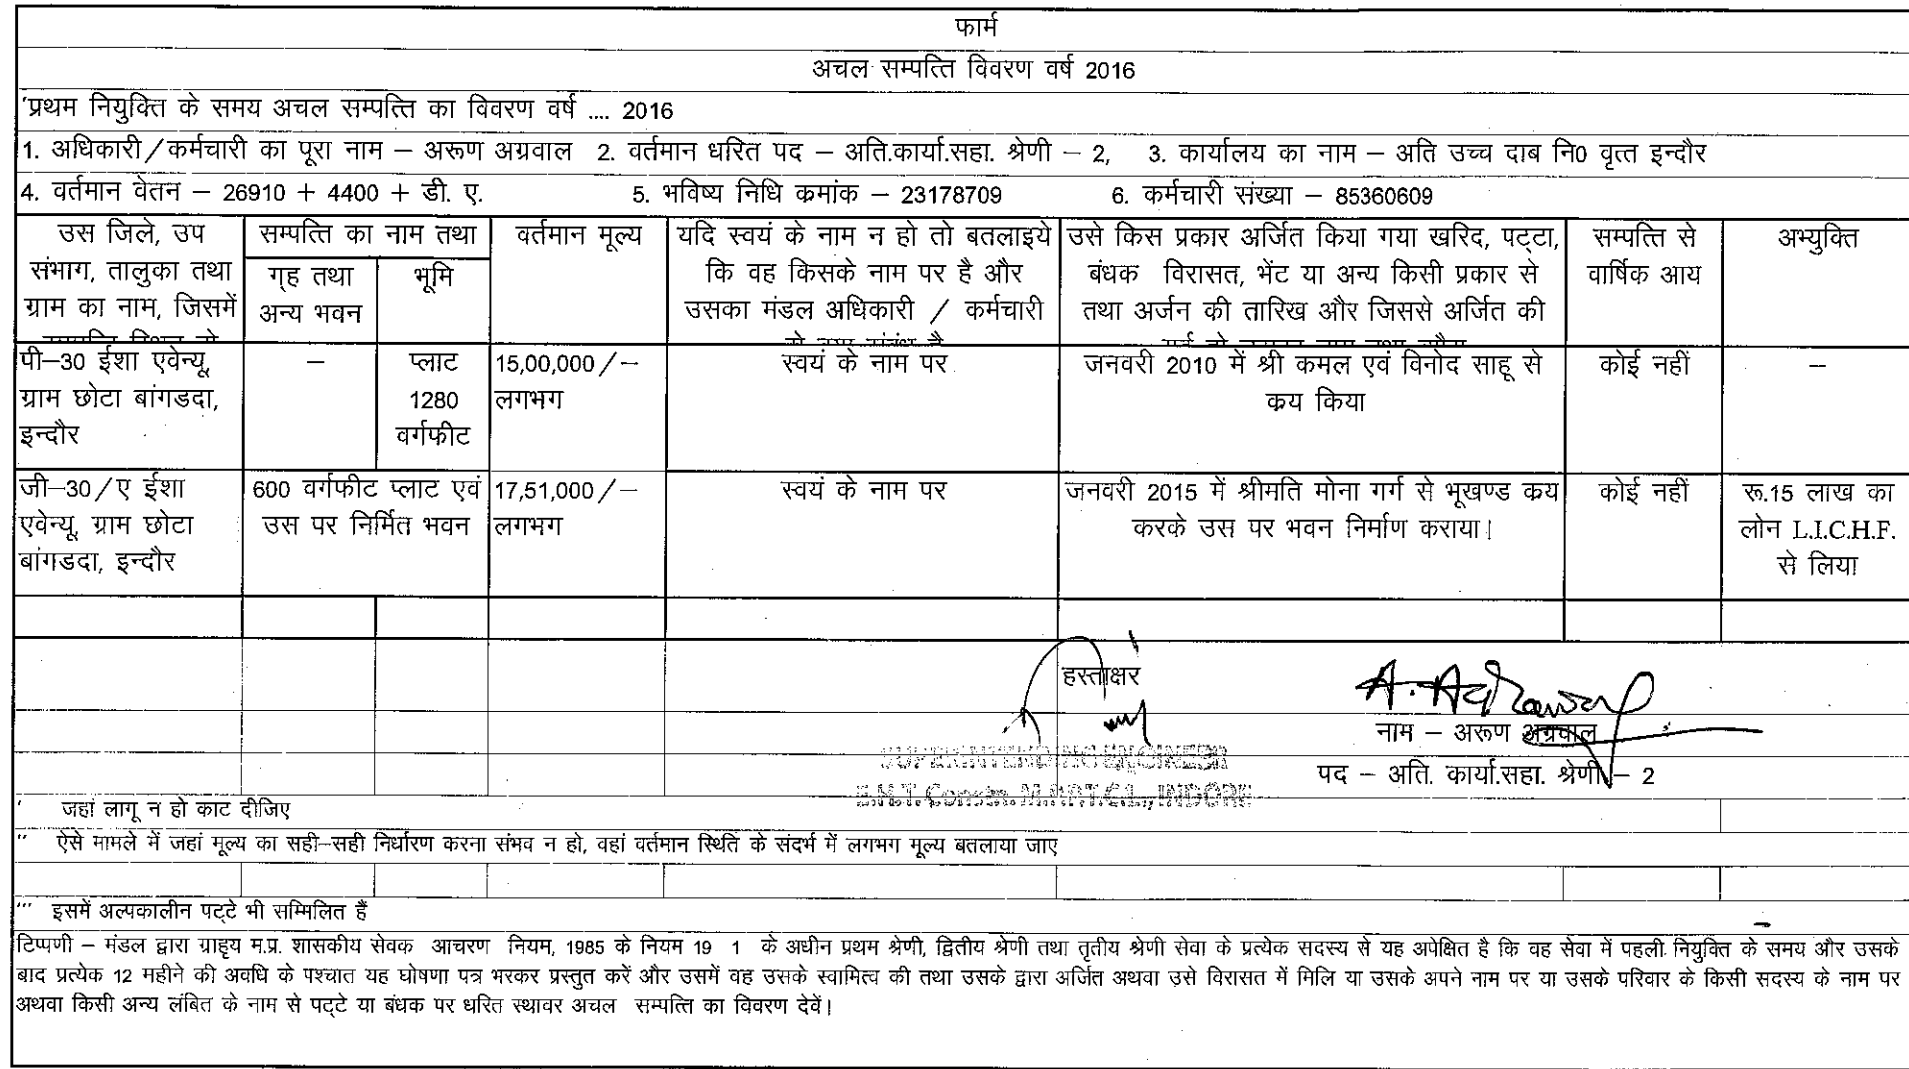 फार्म
अचल सम्पत्ति विवरण वर्ष 2016
'प्रथम नियुक्ति के समय अचल सम्पत्ति का विवरण वर्ष .... 2016
1. अधिकारी/कर्मचारी का पूरा नाम – अरूण अग्रवाल 2. वर्तमान धरित पद – अति.कार्या.सहा. श्रेणी – 2, 3. कार्यालय का नाम – अति उच्च दाब नि0 वृत्त इन्दौर
4. वर्तमान वेतन – 26910 + 4400 + डी. ए. 5. भविष्य निधि क्रमांक – 23178709 6. कर्मचारी संख्या – 85360609
उस जिले, उप
संभाग, तालुका तथा
ग्राम का नाम, जिसमें
सम्पत्ति का नाम तथा
गृह तथा
अन्य भवन
भूमि
वर्तमान मूल्य
यदि स्वयं के नाम न हो तो बतलाइये
कि वह किसके नाम पर है और
उसका मंडल अधिकारी / कर्मचारी
उसे किस प्रकार अर्जित किया गया खरिद, पट्टा,
बंधक विरासत, भेंट या अन्य किसी प्रकार से
तथा अर्जन की तारिख और जिससे अर्जित की
सम्पत्ति से
वार्षिक आय
अभ्युक्ति
पी–30 ईशा एवेन्यू,
ग्राम छोटा बांगडदा,
इन्दौर
–
प्लाट
1280
वर्गफीट
15,00,000/–
लगभग
स्वयं के नाम पर
जनवरी 2010 में श्री कमल एवं विनोद साहू से
क्रय किया
कोई नहीं
–
जी–30/ए ईशा
एवेन्यू, ग्राम छोटा
बांगडदा, इन्दौर
600 वर्गफीट प्लाट एवं
उस पर निर्मित भवन
17,51,000/–
लगभग
स्वयं के नाम पर
जनवरी 2015 में श्रीमति मोना गर्ग से भूखण्ड क्रय
करके उस पर भवन निर्माण कराया।
कोई नहीं
रू.15 लाख का
लोन L.I.C.H.F.
से लिया
हस्ताक्षर
A. Agrawal
नाम – अरूण अग्रवाल
पद – अति. कार्या.सहा. श्रेणी – 2
SUPERINTENDING ENGINEER
INDORE
' जहां लागू न हो काट दीजिए
'' ऐसे मामले में जहां मूल्य का सही–सही निर्धारण करना संभव न हो, वहां वर्तमान स्थिति के संदर्भ में लगभग मूल्य बतलाया जाए
''' इसमें अल्पकालीन पट्टे भी सम्मिलित हैं
टिप्पणी – मंडल द्वारा ग्राह्य म.प्र. शासकीय सेवक आचरण नियम, 1985 के नियम 19 1 के अधीन प्रथम श्रेणी, द्वितीय श्रेणी तथा तृतीय श्रेणी सेवा के प्रत्येक सदस्य से यह अपेक्षित है कि वह सेवा में पहली नियुक्ति के समय और उसके
बाद प्रत्येक 12 महीने की अवधि के पश्चात यह घोषणा पत्र भरकर प्रस्तुत करें और उसमें वह उसके स्वामित्व की तथा उसके द्वारा अर्जित अथवा उसे विरासत में मिलि या उसके अपने नाम पर या उसके परिवार के किसी सदस्य के नाम पर
अथवा किसी अन्य लंबित के नाम से पट्टे या बंधक पर धरित स्थावर अचल सम्पत्ति का विवरण देवें।